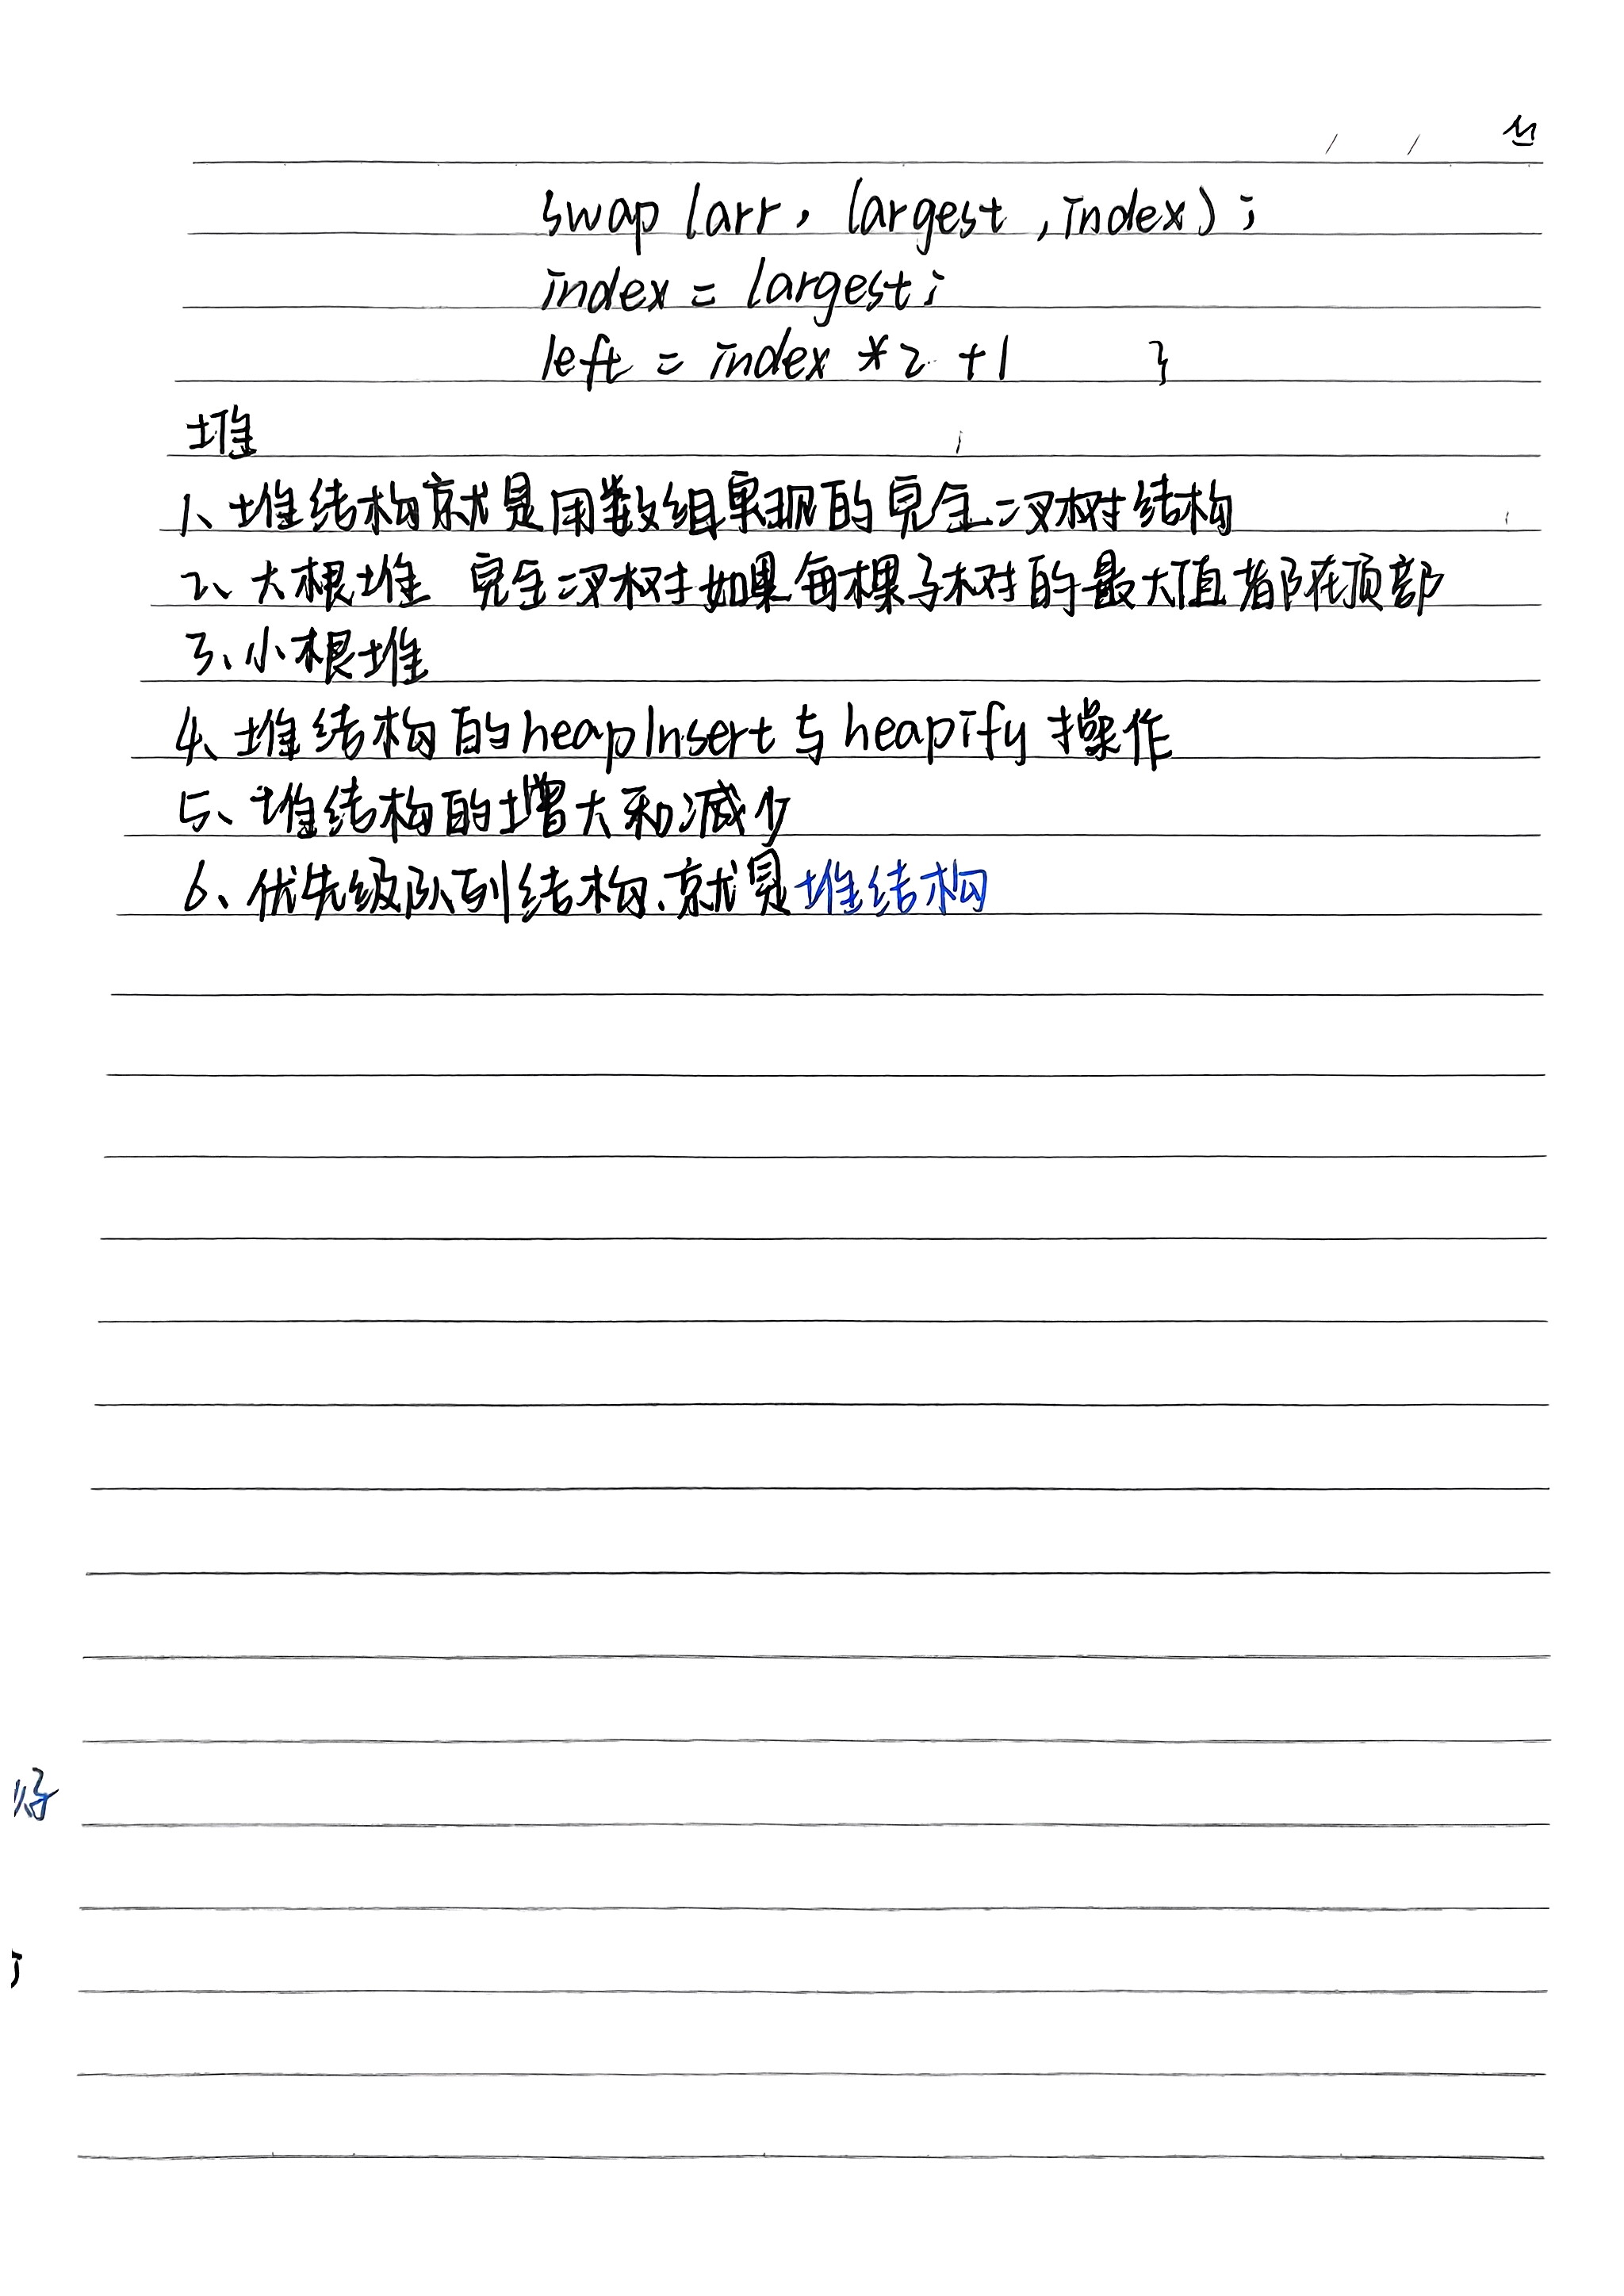 swap (arr, largest, index);
index = largest;
left = index * 2 + 1 }
堆
1、堆结构就是用数组实现的完全二叉树结构
2、大根堆 完全二叉树如果每棵子树的最大值都在顶部
3、小根堆
4、堆结构的heapInsert与heapify操作
5、堆结构的增大和减少
6、优先级队列结构、就是堆结构
好